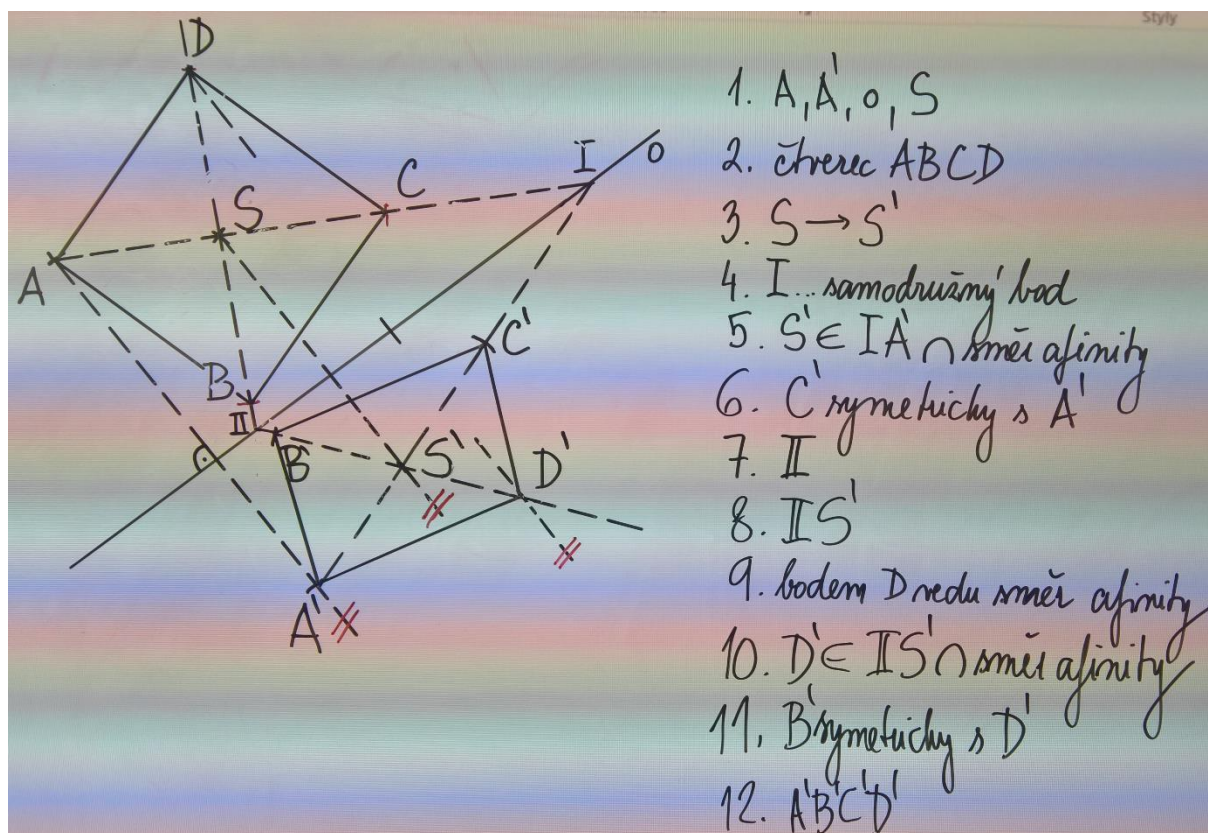 Styly
D
S
C
I
o
A
B
II
C'
B'
S'
D'
A'
1. A, A', o, S
2. čtverec ABCD
3. S → S'
4. I... samodružný bod
5. S' ∈ IA' ∩ směr afinity
6. C' symetricky s A'
7. II
8. IIS'
9. bodem D vedu směr afinity
10. D' ∈ IIS' ∩ směr afinity
11. B' symetricky s D'
12. A'B'C'D'